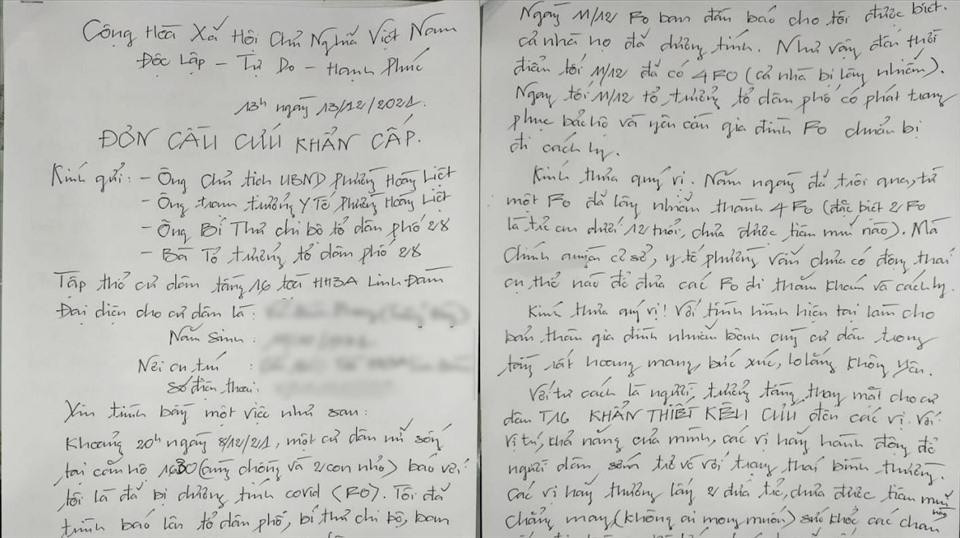 Cộng Hòa Xã Hội Chủ Nghĩa Việt Nam
Độc Lập - Tự Do - Hạnh Phúc
13h ngày 13/12/2021.
ĐƠN CẦU CỨU KHẨN CẤP.
Kính gửi: - Ông Chủ tịch UBND phường Hoàng Liệt
- Ông trạm trưởng Y Tế phường Hoàng Liệt
- Ông Bí Thư chi bộ tổ dân phố 28
- Bà Tổ trưởng tổ dân phố 28
Tập thể cư dân tầng 16 toà HH3A Linh Đàm
Đại diện cho cư dân là:
Năm Sinh:
Nơi cư trú
số điện thoại:
Xin trình bày một việc như sau:
Khoảng 20h ngày 8/12/21, một cư dân nữ sống
tại căn hộ 1630 (cùng chồng và 2 con nhỏ) báo với
tôi là đã bị dương tính covid (F0). Tôi đã
trình báo lên tổ dân phố, bí thư chi bộ, ban
Ngày 11/12 F0 ban đầu báo cho tôi được biết.
cả nhà họ đã dương tính. Như vậy đến thời
điểm tối 11/12 đã có 4 F0 (cả nhà bị lây nhiễm).
Ngay tối 11/12 tổ trưởng tổ dân phố có phát trang
phục bảo hộ và yêu cầu gia đình F0 chuẩn bị
đi cách ly.
Kính thưa quý vị. Năm ngày đã trôi qua, từ
một F0 đã lây nhiễm thành 4 F0 (đặc biệt 2 F0
là trẻ em dưới 12 tuổi, chưa được tiêm mũi nào). Mà
Chính quyền cơ sở, y tế phường vẫn chưa có động thái
cụ thể nào để đưa các F0 đi thăm khám và cách ly.
Kính thưa quý vị! Với tình hình hiện tại làm cho
bản thân gia đình nhiễm bệnh cùng cư dân trong
tầng rất hoang mang, bức xúc, lo lắng không yên.
Với tư cách là người, trưởng tầng thay mặt cho cư
dân T16 KHẨN THIẾT KÊU CỨU đến các vị. Với
vị trí, khả năng của mình, các vị hãy hành động để
người dân sớm trở về với trạng thái bình thường.
Các vị hãy thương lấy 2 đứa trẻ, chưa được tiêm mũi
nào
chẳng may (không ai mong muốn) sức khỏe các cháu